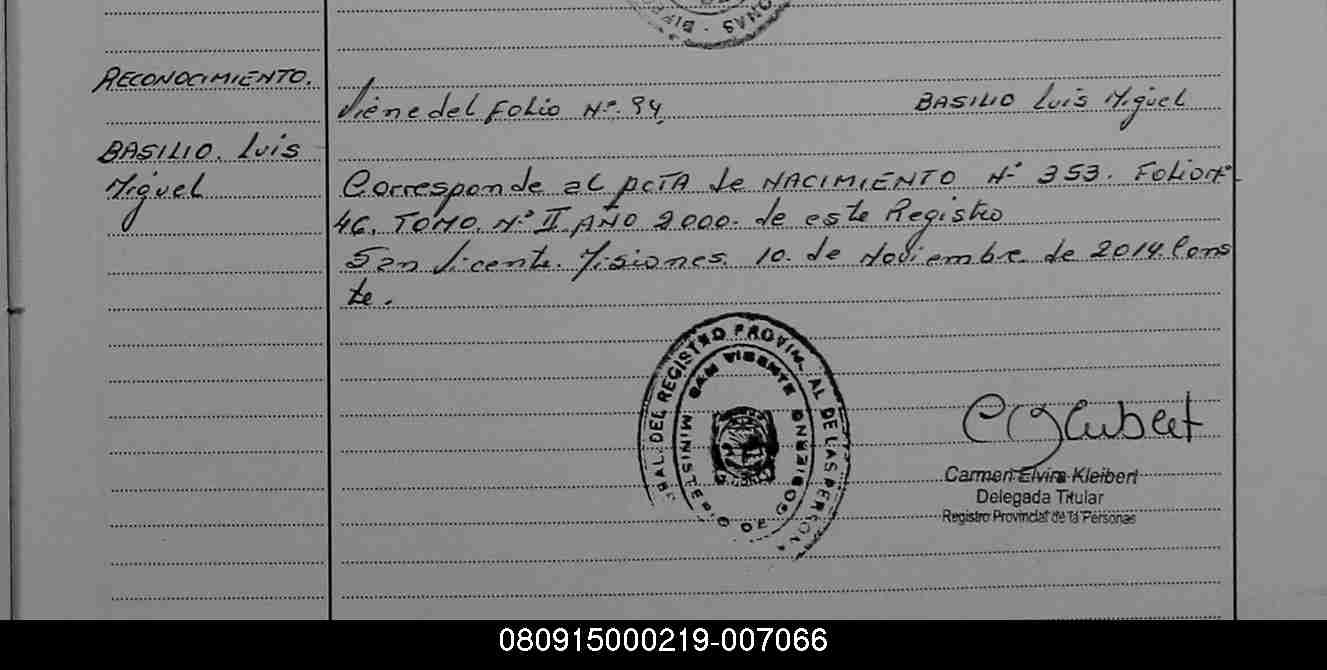 RECONOCIMIENTO.
Viene del Folio Nº. 94. BASILIO Luis Miguel
BASILIO. Luis
Miguel
Corresponde al ACTA de NACIMIENTO Nº 353. Folio Nº
46. TOMO. Nº II. AÑO 2000. de este Registro
San Vicente. Misiones. 10. de Noviembre. de 2014. Cons
te.
REGISTRO PROVIN AL DE LAS PERSONA
SAN VICENTE
MINISTERIO DE GOBIERNO
Carmen Elvira Kleibert
Delegada Titular
Registro Provincial de la Personas
080915000219-007066